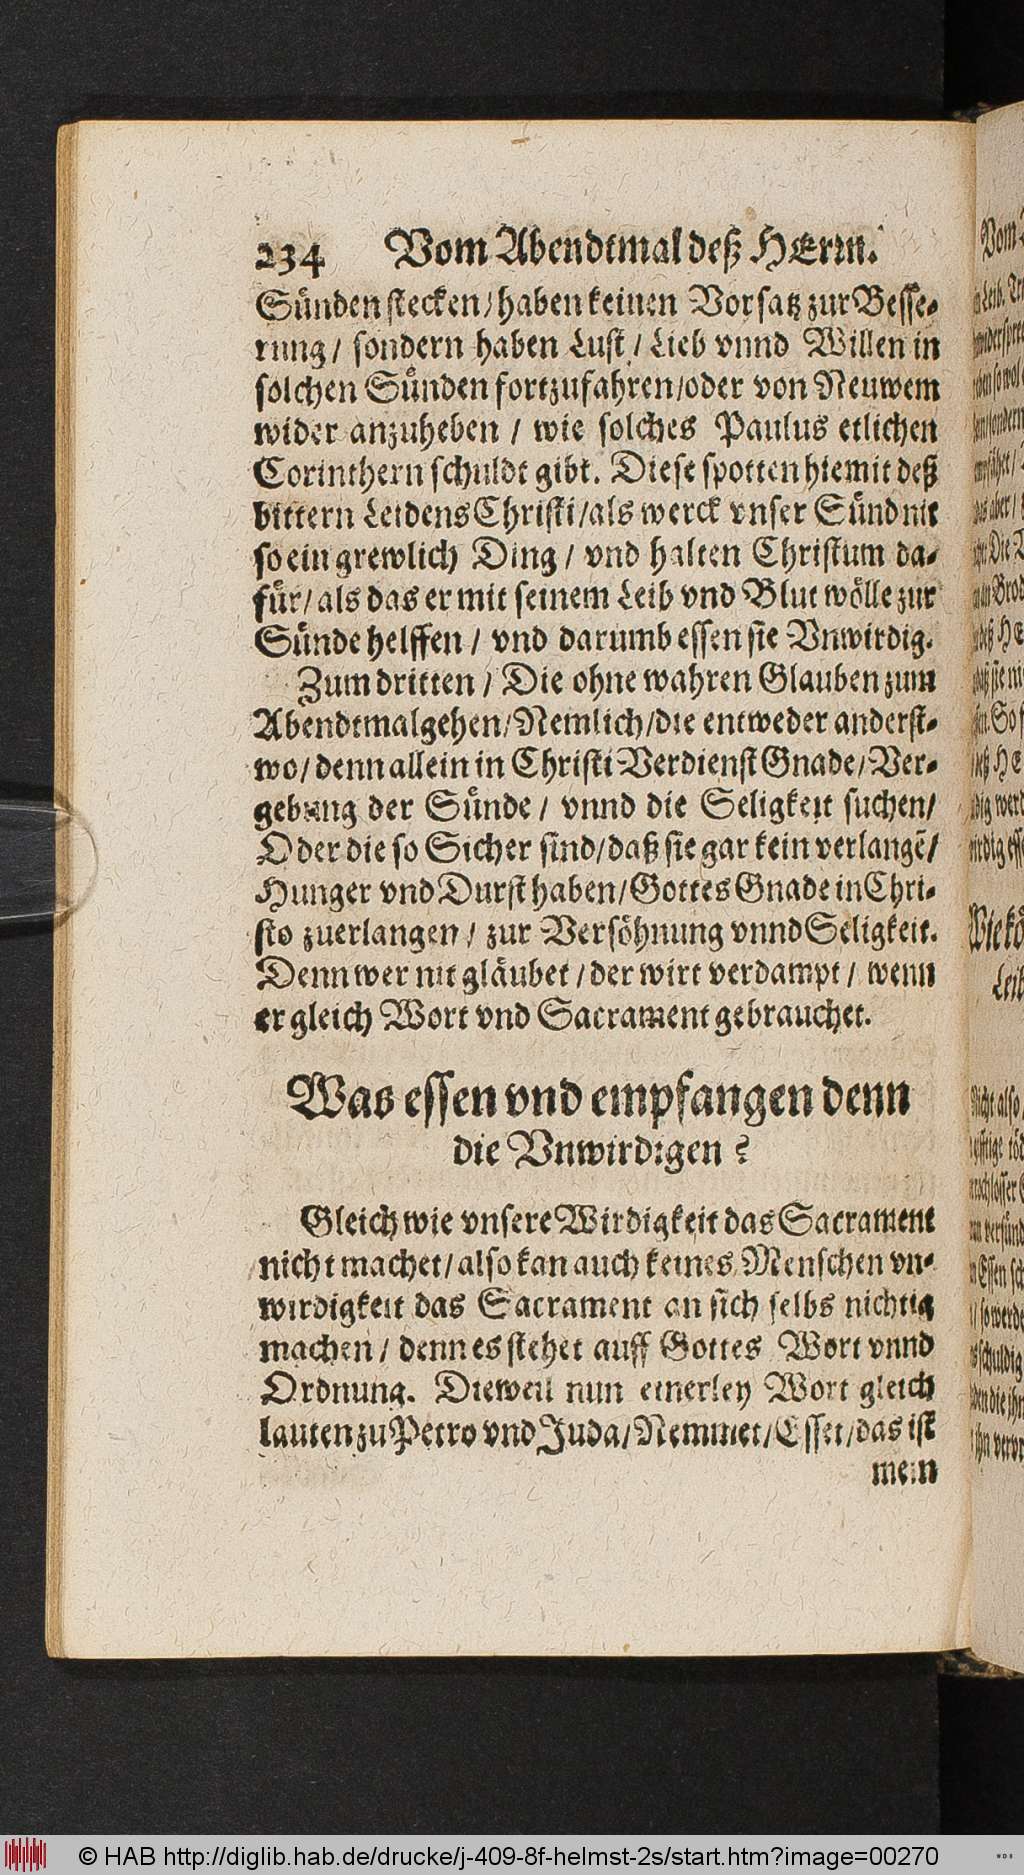 234 Vom Abendtmal deß HErrn.
Sünden stecken/ haben keinen Vorsatz zur Besse⸗
rung/ sondern haben Lust/ Lieb vnnd Willen in
solchen Sünden fortzufahren/ oder von Neuwem
wider anzuheben/ wie solches Paulus etlichen
Corinthern schuldt gibt. Diese spotten hiemit deß
bittern Leidens Christi/ als werck vnser Sünd nit
so ein grewlich Ding/ vnd halten Christum da⸗
für/ als das er mit seinem Leib vnd Blut wölle zur
Sünde helffen/ vnd darumb essen sie Vnwirdig.
Zum dritten/ Die ohne wahren Glauben zum
Abendtmal gehen/ Nemlich/ die entweder anderst⸗
wo/ denn allein in Christi Verdienst Gnade/ Ver⸗
gebung der Sünde/ vnnd die Seligkeit suchen/
Oder die so Sicher sind/ daß sie gar kein verlangē/
Hunger vnd Durst haben/ Gottes Gnade in Chri⸗
sto zuerlangen/ zur Versöhnung vnnd Seligkeit.
Denn wer nit gläubet/ der wirt verdampt/ wenn
er gleich Wort vnd Sacrament gebrauchet.
Was essen vnd empfangen denn
die Vnwirdigen?
Gleich wie vnsere Wirdigkeit das Sacrament
nicht machet/ also kan auch keines Menschen vn⸗
wirdigkeit das Sacrament an sich selbs nichtig
machen/ denn es stehet auff Gottes Wort vnnd
Ordnung. Dieweil nun einerley Wort gleich
lauten zu Petro vnd Juda/ Nemmet/ Esset/ das ist
mein
© HAB http://diglib.hab.de/drucke/j-409-8f-helmst-2s/start.htm?image=00270